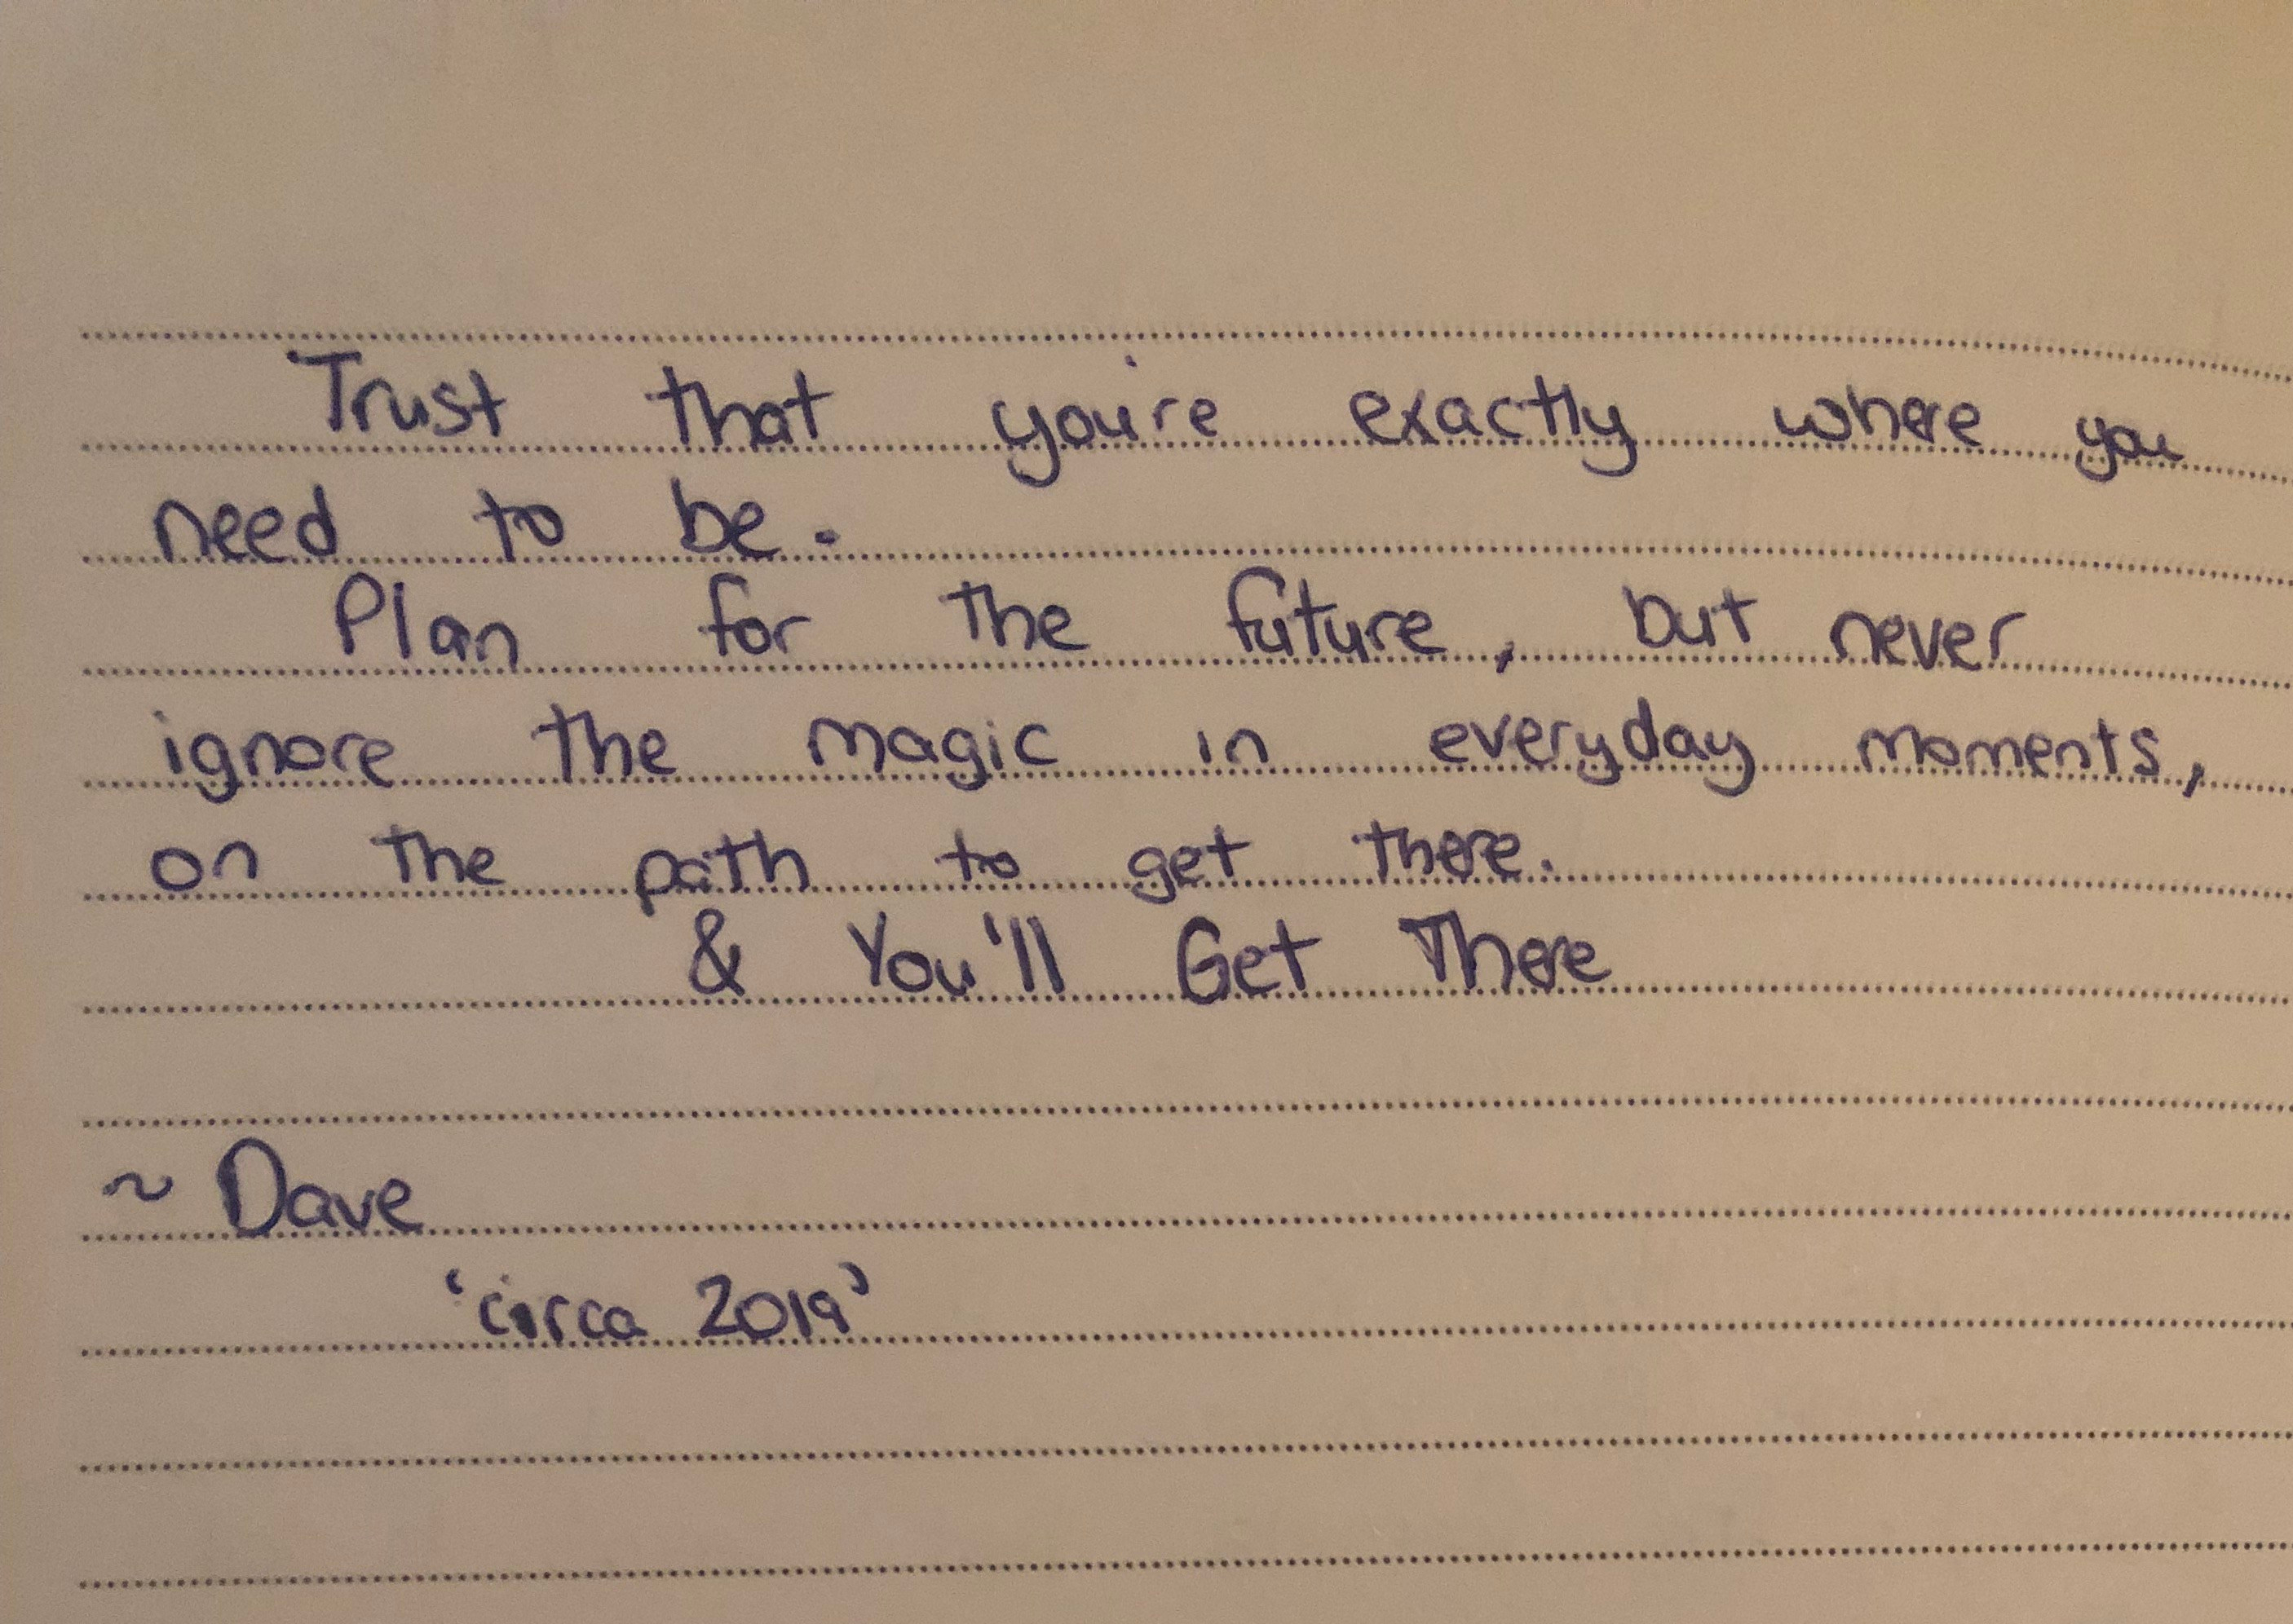 Trust that you're exactly where you
need to be.
Plan for the future, but never
ignore the magic in everyday moments,
on the path to get there.
& You'll Get There
~ Dave
'circa 2019'